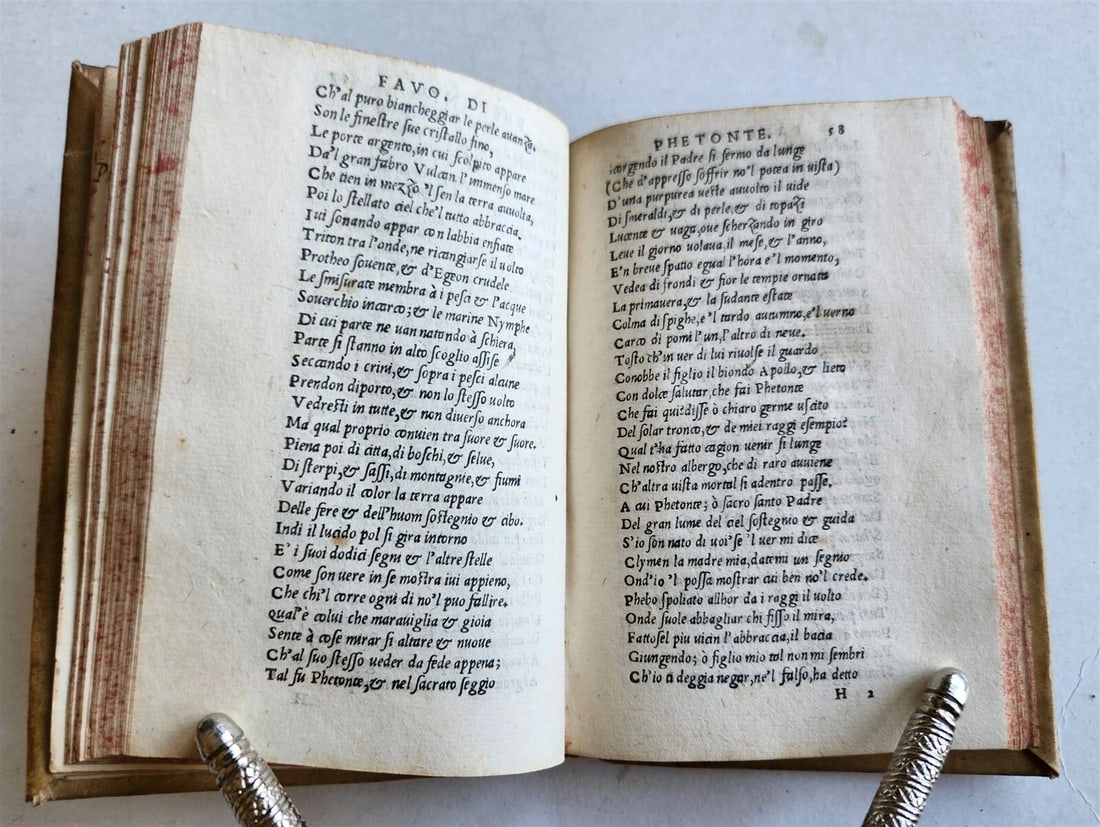 FAVO. DI
Ch'al puro biancheggiar le perle auanza.
Son le finestre sue cristallo fino,
Le porte argento, in cui scolpito appare
Da'l gran fabro Vulcan l'immenso mare
Che tien in mezzo 'l sen la terra auuolta,
Poi lo stellato ciel che'l tutto abbraccia.
Iui sonando appar con labbia enfiate
Triton tra l'onde, ne ricangiarse il uolto
Protheo souente, & d'Egeon crudele
Le smisurate membra à i pesci & l'acque
Souerchio incarco; & le marine Nymphe
Di cui parte ne uan natando à schiera,
Parte si stanno in alto scoglio assise
Seccando i crini, & sopra i pesci alcune
Prendon diporto, & non lo stesso uolto
Vedresti in tutte, & non diuerso anchora
Ma qual proprio conuien tra suore & suore.
Piena poi di citta, di boschi, & selue,
Di sterpi, & sassi, di montagnie, & fiumi
Variando il color la terra appare
Delle fere & dell'huom sostegnio & cibo.
Indi il lucido pol si gira intorno
E' i suoi dodici segni & l'altre stelle
Come son uere in se mostra iui appieno,
Che chi'l corre ogni di no'l puo fallire.
qual'è colui che marauiglia & gioia
Sente à cose mirar si altare & nuoue
Ch'al suo stesso ueder da fede appena;
Tal fu Phetonte, & nel sacrato seggio
PHETONTE. 58
scorgendo il Padre si fermo da lunge
(Che d'appresso soffrir no'l potea in uista)
D'una purpurea ueste auuolto il uide
Di smeraldi, & di perle, & di topazi
Lucente & uaga, oue scherzando in giro
Leue il giorno uolaua, il mese, & l'anno,
E'n breue spatio egual l'hora e'l momento,
Vedea di frondi & fior le tempie ornata
La primauera, & la sudante estate
Colma di spighe, e'l tardo autumno, e'l uerno
Carco di pomi l'un, l'altro di neue.
Tosto ch'in uer di lui riuolse il guardo
Conobbe il figlio il biondo Apollo, & lieto
Con dolce salutar, che fai Phetonte
Che fai qui? disse ò chiaro germe uscito
Del solar tronco, & de miei raggi esempio?
Qual t'ha fatto cagion uenir si lunge
Nel nostro albergo, che di raro auuiene
Ch'altra uista mortal si adentro passe.
A cui Phetonte; ò sacro santo Padre
Del gran lume del ciel sostegnio & guida
S'io son nato di uoi 'se 'l uer mi dice
Clymen la madre mia, datemi un segnio
Ond'io 'l possa mostrar cui ben no'l crede.
Phebo spoliato allhor da i raggi il uolto
Onde suole abbagliar chi fisso il mira,
Fattosel piu uicin l'abbraccia, il bacia
Giungendo; ò figlio mio tal non mi sembri
Ch'io ti deggia negar, ne'l falso, ha detto
H 2